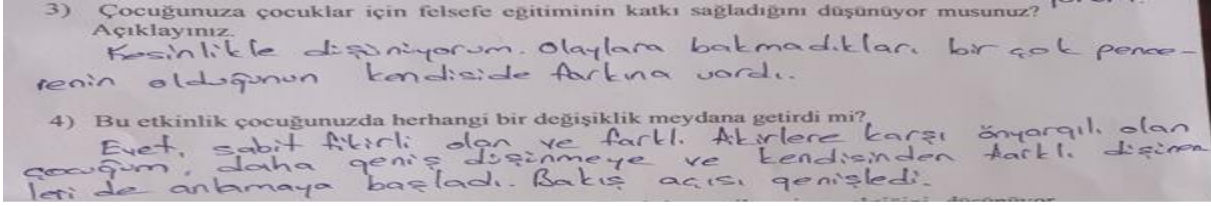 3) Çocuğunuza çocuklar için felsefe eğitiminin katkı sağladığını düşünüyor musunuz?
Açıklayınız.
Kesinlikle düşünüyorum. Olaylara bakmadıkları bir çok pence-
renin olduğunun kendiside farkına vardı.
4) Bu etkinlik çocuğunuzda herhangi bir değişiklik meydana getirdi mi?
Evet, sabit fikirli olan ve farklı fikirlere karşı önyargılı olan
çocuğum, daha geniş düşünmeye ve kendisinden farklı düşünen
leri de anlamaya başladı. Bakış açısı genişledi.